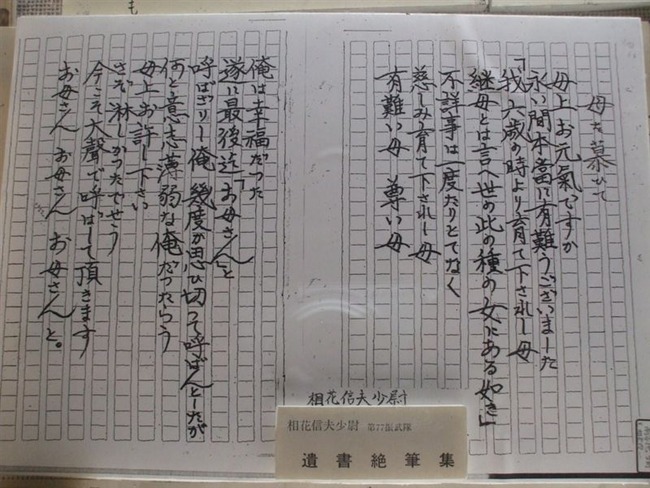 も
母を慕ひて
母上お元氣ですか
永い間本當に有難うございました
「我六歳の時より育て下されし母
継母とは言へ世の此の種の女にある如き」
不祥事は一度たりとてなく
慈しみ育て下されし母
有難い母 尊い母
俺は幸福だった
遂に最後迄「お母さん」と
呼ばざりし俺 幾度か思ひ切って呼ばんとしたが
何と意志薄弱な俺だったらう
母上お許し下さい
さぞ淋しかったでせう
今こそ大聲で呼ばして頂きます
お母さん お母さん お母さんと。
相花信夫少尉
相花信夫少尉 第77振武隊
遺書絶筆集